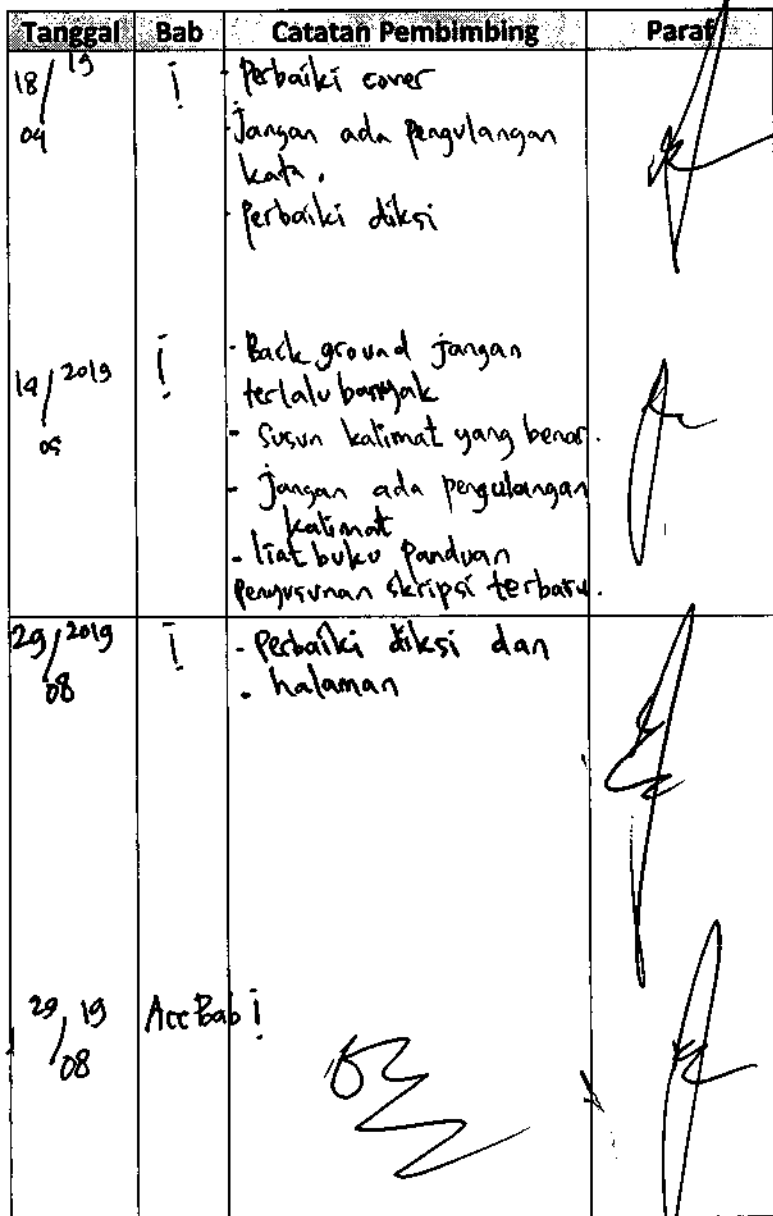 Tanggal Bab Catatan Pembimbing Paraf
18/19 I - Perbaiki cover
04 Jangan ada pengulangan
kata.
- Perbaiki diksi
- Back ground jangan
14/2019 I terlalu banyak
05 - Susun kalimat yang benar.
- Jangan ada pengulangan
kalimat
- liat buku Panduan
penyusunan skripsi terbaru.
29/2019 I - Perbaiki diksi dan
08 - halaman
29/19 Acc Bab I
08